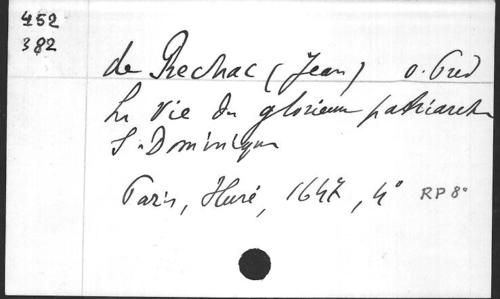 452
382
de Rechac (Jean) o. Pred
La Vie du glorieux patriarche
S. Dominique
Paris, Huré, 1647, 4° RP 8°